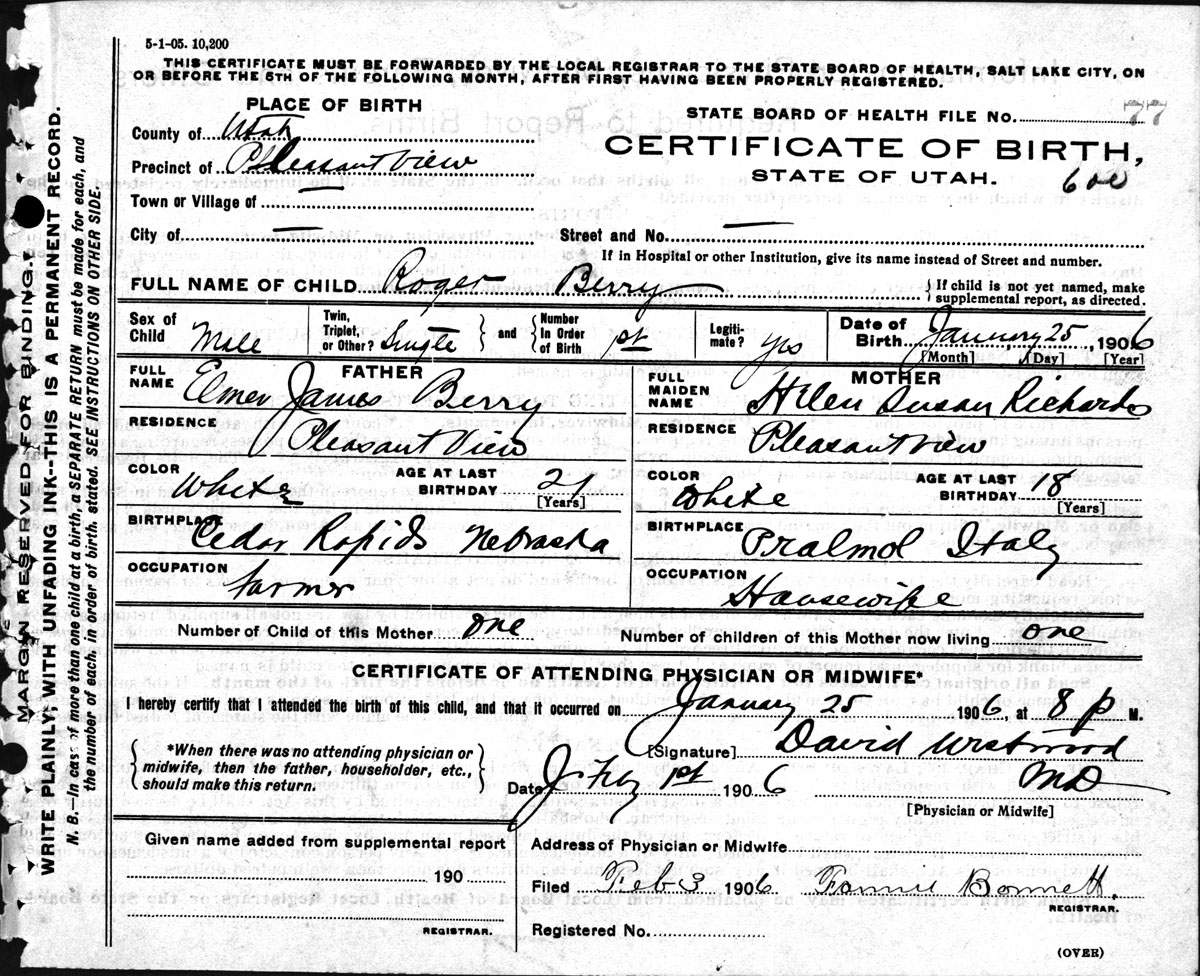 5-1-05. 10,200
THIS CERTIFICATE MUST BE FORWARDED BY THE LOCAL REGISTRAR TO THE STATE BOARD OF HEALTH, SALT LAKE CITY, ON
OR BEFORE THE 5TH OF THE FOLLOWING MONTH, AFTER FIRST HAVING BEEN PROPERLY REGISTERED.
MARGIN RESERVED FOR BINDING.
WRITE PLAINLY, WITH UNFADING INK--THIS IS A PERMANENT RECORD.
N. B.—In case of more than one child at a birth, a SEPARATE RETURN must be made for each, and
the number of each, in order of birth, stated. SEE INSTRUCTIONS ON OTHER SIDE.
PLACE OF BIRTH
County of Utah
Precinct of Pleasant View
Town or Village of
City of —
STATE BOARD OF HEALTH FILE No. 77
CERTIFICATE OF BIRTH,
STATE OF UTAH.
600
Street and No. —
If in Hospital or other Institution, give its name instead of Street and number.
FULL NAME OF CHILD Roger Berry { If child is not yet named, make
supplemental report, as directed.
Sex of Child Male
Twin, Triplet, or Other? Single } and { Number In Order of Birth 1st
Legiti-mate? yes
Date of Birth January 25, 1906
[Month] [Day] [Year]
FATHER
FULL NAME Elmer James Berry
RESIDENCE Pleasant View
COLOR White AGE AT LAST BIRTHDAY 21
[Years]
BIRTHPLACE Cedar Rapids Nebraska
OCCUPATION Farmer
MOTHER
FULL MAIDEN NAME Helen Susan Richards
RESIDENCE Pleasant View
COLOR White AGE AT LAST BIRTHDAY 18
[Years]
BIRTHPLACE Pralmol Italy
OCCUPATION Housewife
Number of Child of this Mother one Number of children of this Mother now living one
CERTIFICATE OF ATTENDING PHYSICIAN OR MIDWIFE*
I hereby certify that I attended the birth of this child, and that it occurred on January 25 1906, at 8 p M.
{ *When there was no attending physician or
midwife, then the father, householder, etc.,
should make this return. }
[Signature] David Westwood
Date 1st 1906 MD
[Physician or Midwife]
Given name added from supplemental report
190
REGISTRAR.
Address of Physician or Midwife
Filed Feb 3 1906 Fannie Bonnett.
REGISTRAR.
Registered No.
(OVER)